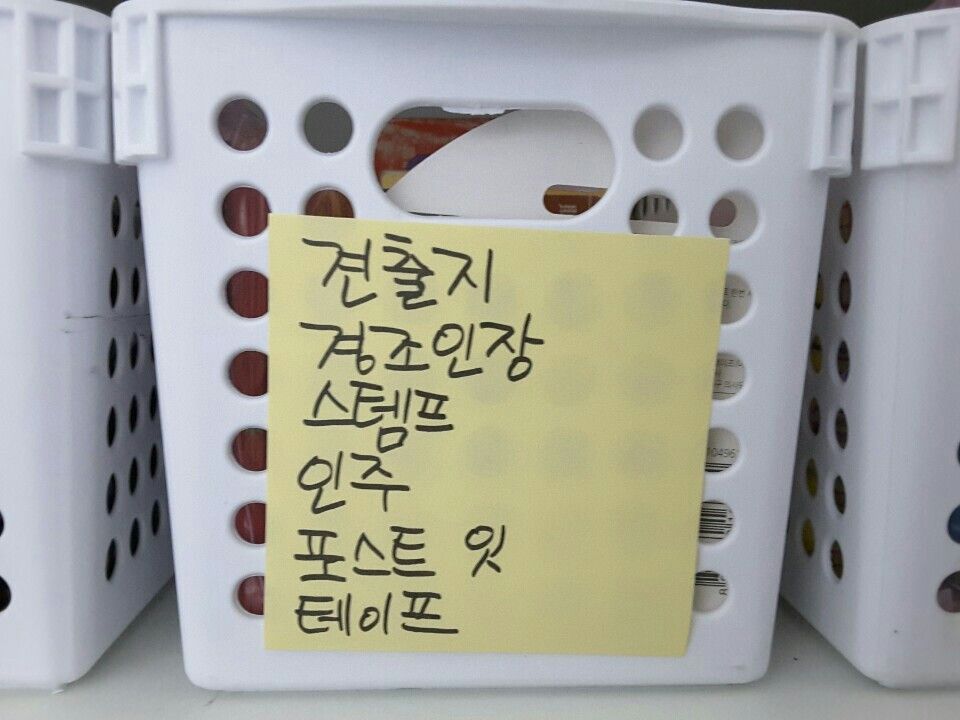 견출지
경조인장
스템프
인주
포스트 잇
테이프